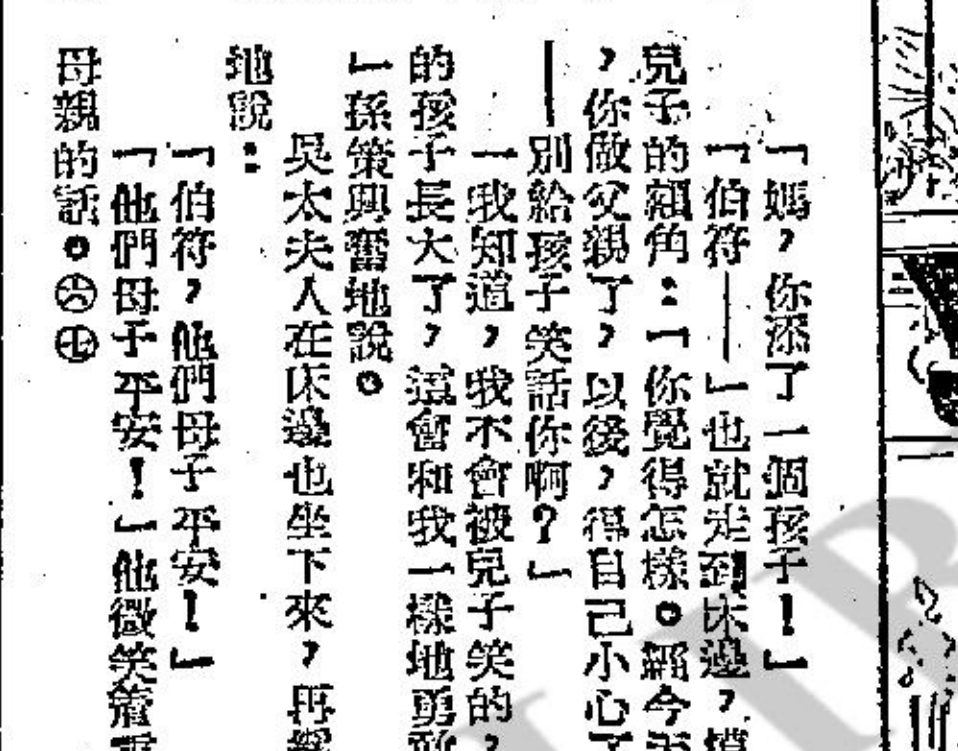 「媽，你添了一個孩子！」
「伯符——」也就走到床邊，摸
兒子的額角：「你覺得怎樣。今天
，你做父親了，以後，得自己小心了
——別給孩子笑話你啊？」
「我知道，我不會被兒子笑的，
的孩子長大了，這會和我一樣地勇敢
」孫策興奮地說。
吳太夫人在床邊也坐下來，再
地說：
「伯符，他們母子平安！」
「他們母子平安！」他微笑着重
母親的話。㊅㊆